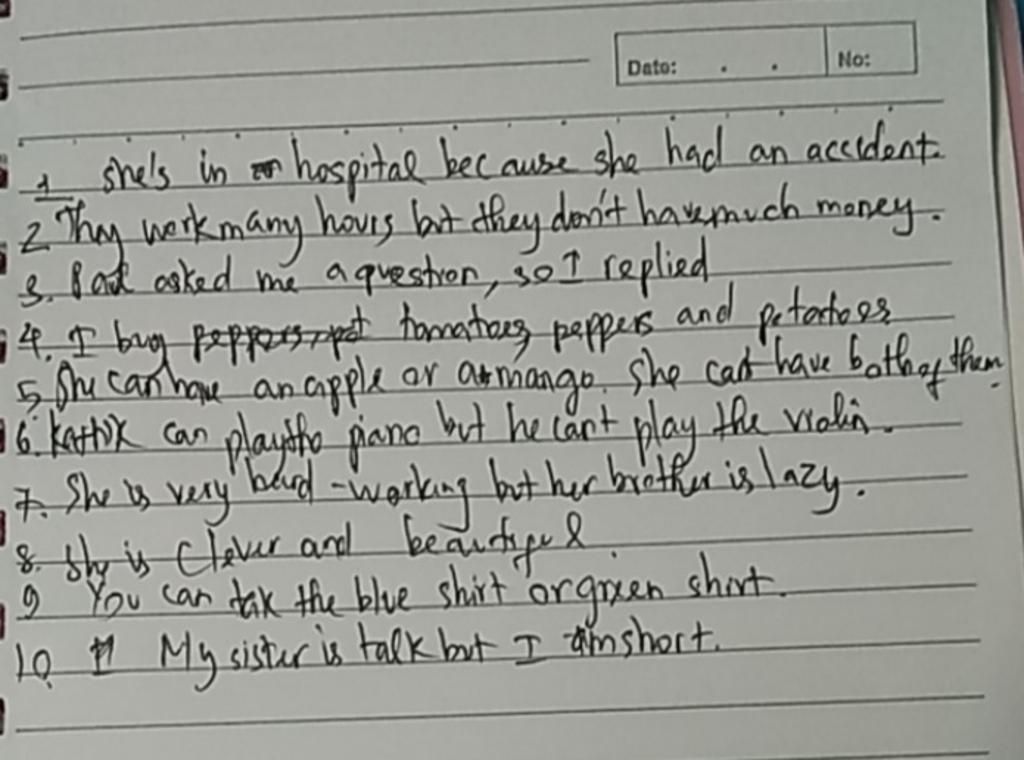 Date: . . No:
1 She's in hospital because she had an accident.
2 They work many hours but they don't have much money.
3. asked me a question, so I replied
4. I buy tomatoes, peppers and potatoes
5, She can have an apple or a mango. She can't have both of them.
6. can play the piano but he can't play the violin.
7. She is very hard-working but her brother is lazy.
8. She is clever and beautiful.
9 You can tak the blue shirt or green shirt.
10. My sister is talk but I am short.